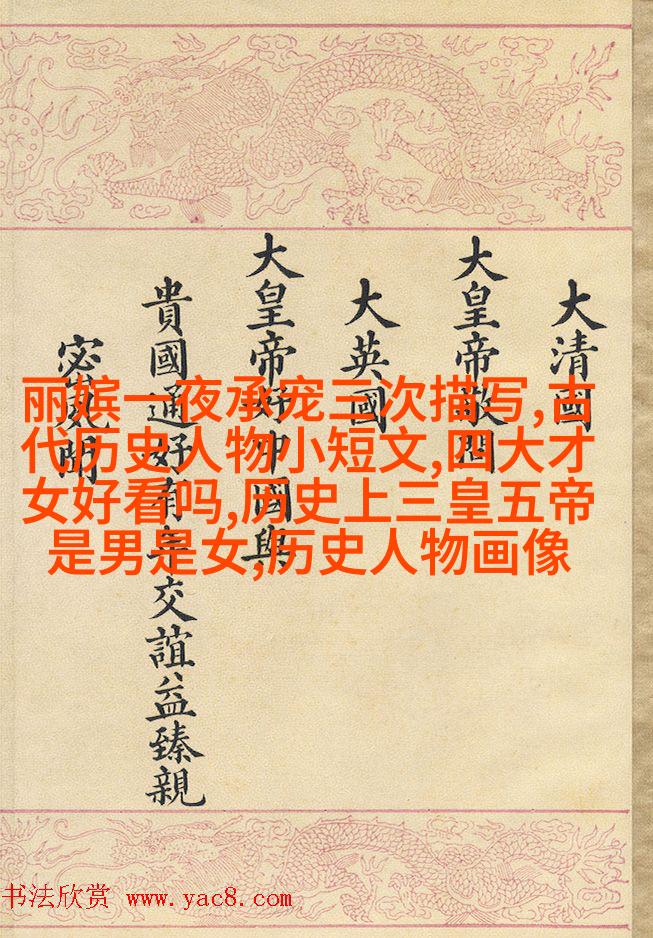 大清國
大皇帝敬問
大英國
大皇帝好中國與
貴國通好有年交誼益臻親
密夙聞
丽嫔一夜承宠三次描写,古
代历史人物小短文,四大才
女好看吗,历史上三皇五帝
是男是女,历史人物画像
书法欣赏 www.yac8.com